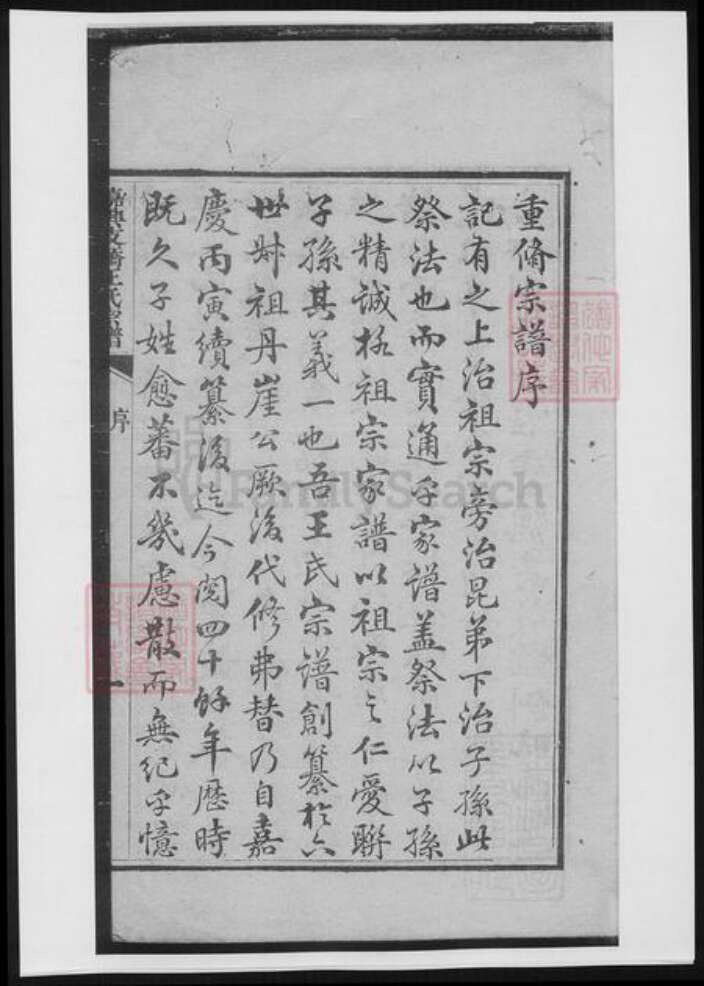 重脩宗譜序
記有之上治祖宗旁治昆弟下治子孫此
祭法也而實通乎家譜蓋祭法以子孫
之精誠格祖宗家譜以祖宗之仁愛聯
子孫其義一也吾王氏宗譜創纂於六
世叔祖丹崖公厥後代修弗替乃自嘉
慶丙寅續纂後迄今閱四十餘年歷時
既久子姓愈蕃不幾慮散而無紀乎憶
王氏宗譜
序
一
FamilySearch